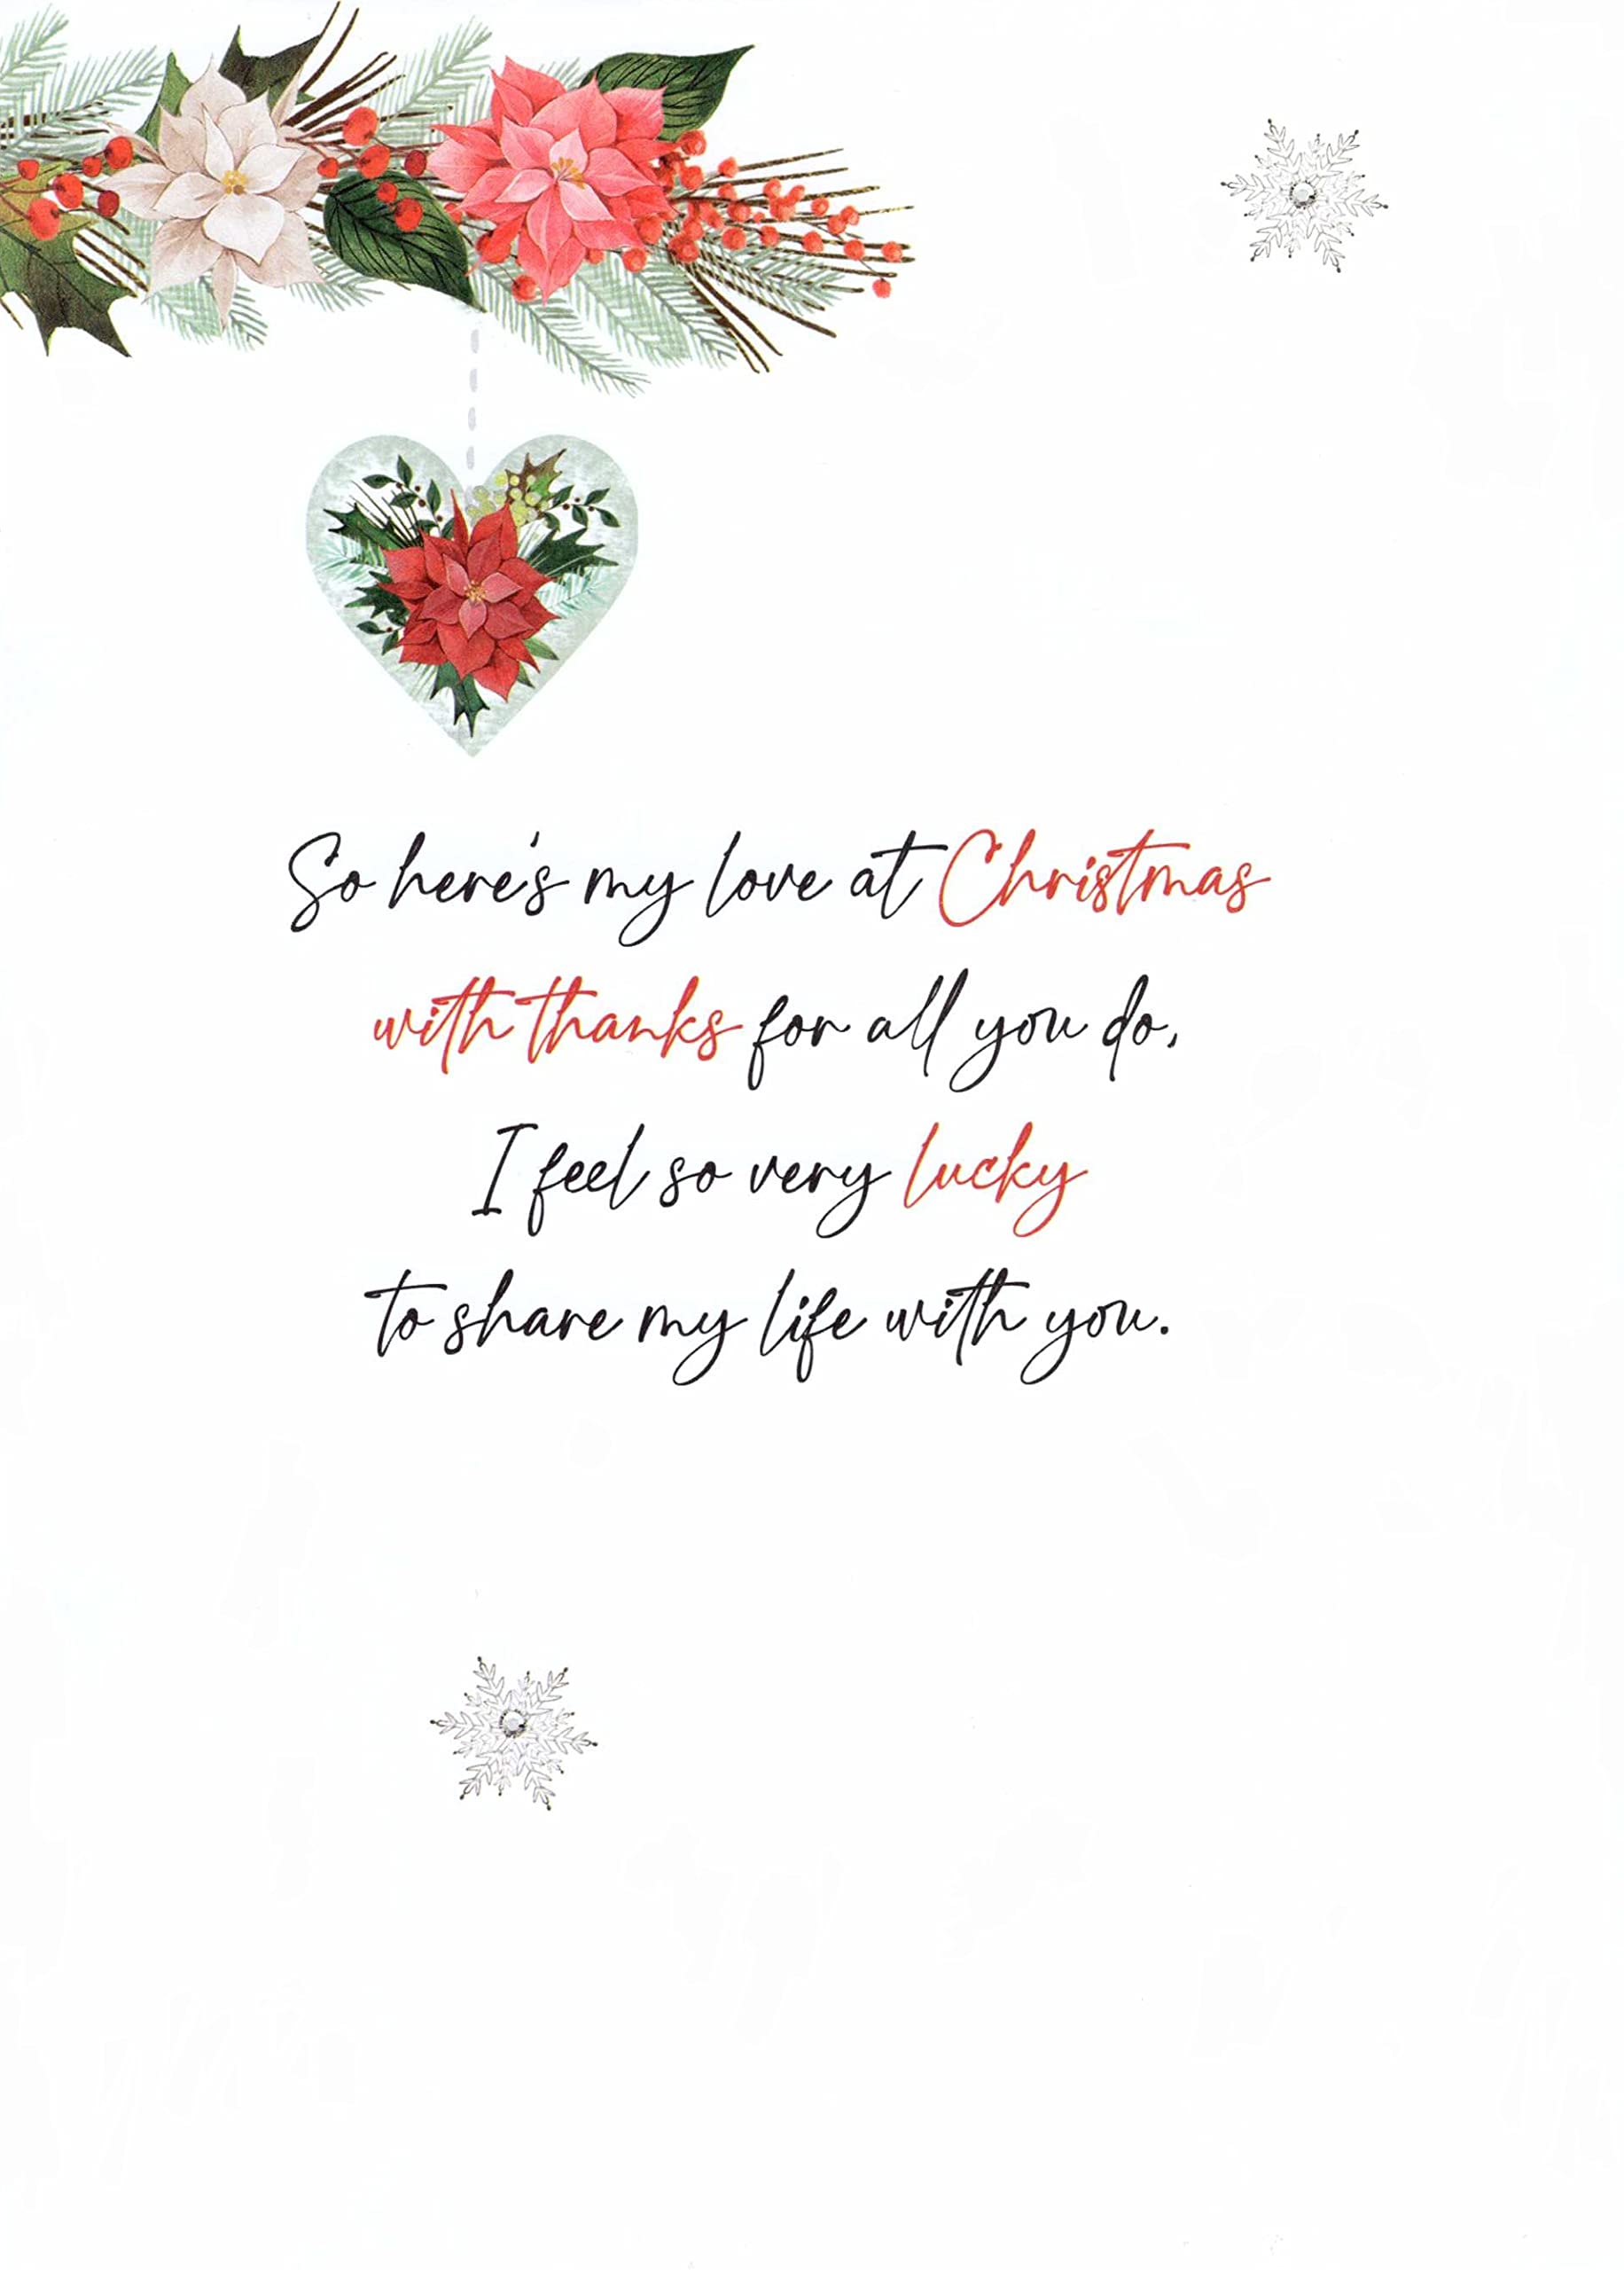 So here's my love at Christmas
with thanks for all you do,
I feel so very lucky
to share my life with you.